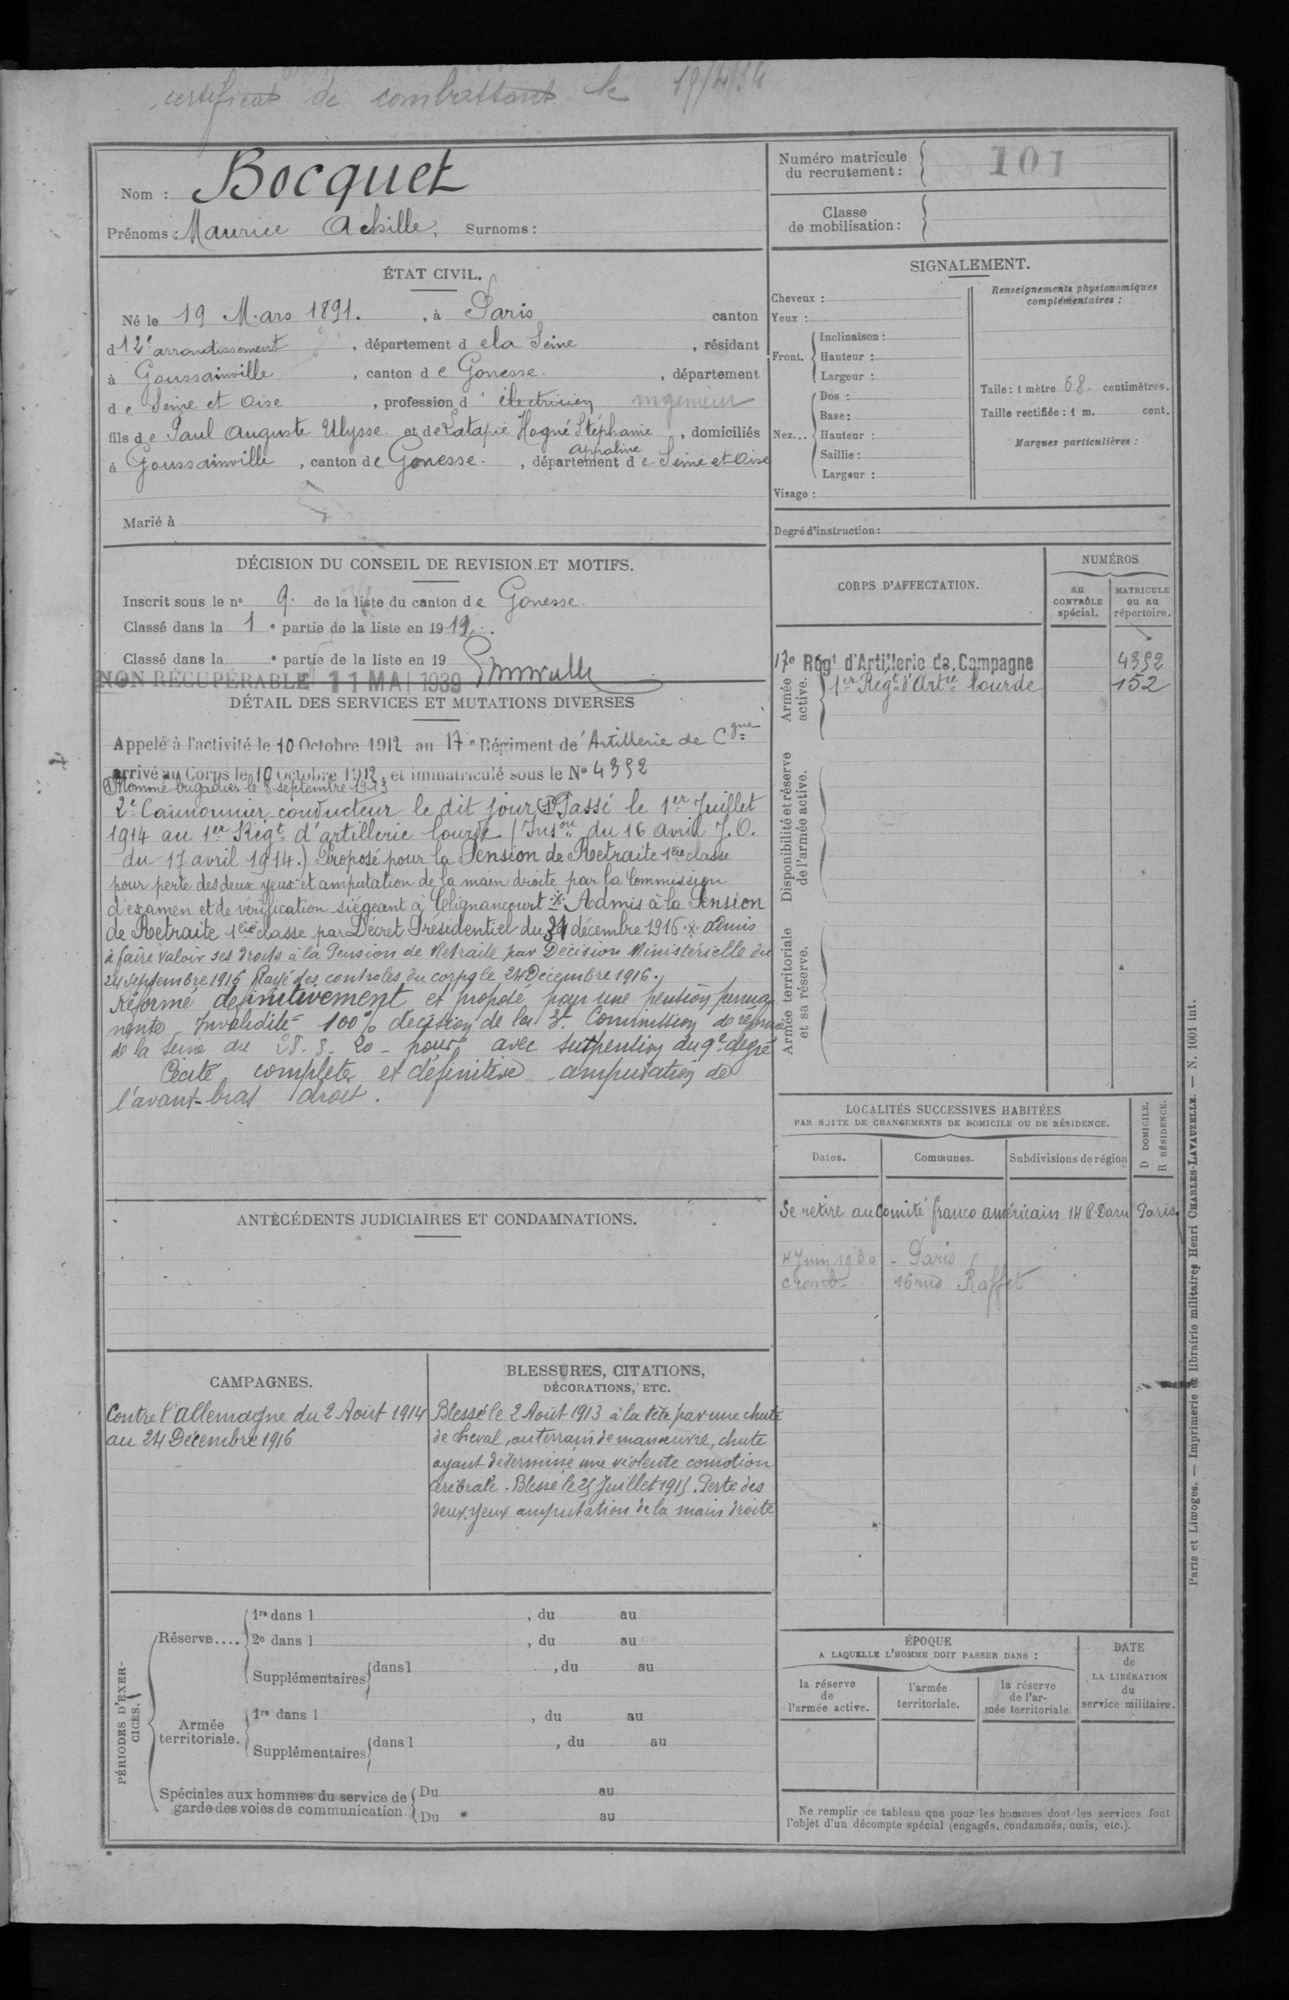 certificat de combattant le 19/4/34
Nom : Bocquet
Prénoms : Maurice Achille, Surnoms :
Numéro matricule du recrutement : 101
Classe de mobilisation :
ÉTAT CIVIL.
Né le 19 Mars 1891. , à Paris canton
d 12e arrondissement , département d e la Seine , résidant
à Goussainville , canton d e Gonesse. , département
d e Seine et Oise , profession d' électricien ingénieur
fils d e Paul Auguste Ulysse et de Latapie Hogné Stéphanie , domiciliés
Appoline
à Goussainville , canton d e Gonesse. , département d e Seine et Oise
Marié à
SIGNALEMENT.
Cheveux :
Yeux :
Front. Inclinaison :
Hauteur :
Largeur :
Nez... Dos :
Base :
Hauteur :
Saillie :
Largeur :
Visage :
Renseignements physionomiques complémentaires :
Taille : 1 mètre 68 centimètres.
Taille rectifiée : 1 m. cent.
Marques particulières :
Degré d'instruction :
DÉCISION DU CONSEIL DE REVISION ET MOTIFS.
Inscrit sous le no 9. de la liste du canton d e Gonesse.
Classé dans la 1 e partie de la liste en 19 12.
Classé dans la e partie de la liste en 19
NON RÉCUPÉRABLE 11 MAI 1939
DÉTAIL DES SERVICES ET MUTATIONS DIVERSES
Appelé à l'activité le 10 Octobre 1912 au 17e Régiment de Artillerie de Cgne
arrivé au Corps le 10 Octobre 1912, et immatriculé sous le No 4392
Nommé brigadier le 8 septembre 1913
2e Cannonier conducteur le dit jour Passé le 1er Juillet
1914 au 1er Régt d'artillerie lourde (Inson du 16 avril J.O.
du 17 avril 1914.) Proposé pour la Pension de Retraite 1ère classe
pour perte des deux yeux et amputation de la main droite par la Commission
d'examen et de vérification siégeant à Clignancourt Admis à la Pension
de Retraite 1ère classe par Décret Présidentiel du décembre 1916 Admis
à faire valoir ses droits à la Pension de Retraite par Décision Ministérielle du
24 septembre 1916 Rayé des controles du corps le 24 Décembre 1916.
Réformé définitivement et proposé pour une pension perma
nente Invalidité 100% décision de la 3e Commission de réforme
de la Seine du 28.5.20 - pour avec suspension du 9e degré
Cécité complète et définitive amputation de
l'avant-bras droit.
CORPS D'AFFECTATION.
NUMÉROS
au CONTRÔLE spécial.
MATRICULE ou au répertoire.
17e Régt d'Artillerie de Campagne 4392
1er Régt d'Artie lourde 152
Armée active.
Disponibilité et réserve de l'armée active.
Armée territoriale et sa réserve.
ANTÉCÉDENTS JUDICIAIRES ET CONDAMNATIONS.
LOCALITÉS SUCCESSIVES HABITÉES
PAR SUITE DE CHANGEMENTS DE DOMICILE OU DE RÉSIDENCE.
Dates. Communes. Subdivisions de région
D DOMICILE.
R RÉSIDENCE.
Se retire au Comité franco américain 14 R Daru Paris
4 Juin 1930 - Paris
16 rue Raffet
CAMPAGNES.
Contre l'Allemagne du 2 Août 1914
au 24 Décembre 1916
BLESSURES, CITATIONS,
DÉCORATIONS, ETC.
Blessé le 2 Août 1913 à la tête par une chute
de cheval, au terrain de manœuvre, chute
ayant déterminé une violente comotion
cérébrale. Blessé le 25 Juillet 1915. Perte des
deux yeux amputation de la main droite
PÉRIODES D'EXERCICES.
Réserve.... 1re dans l , du au
2e dans l , du au
Supplémentaires dans l , du au
Armée territoriale. 1re dans l , du au
Supplémentaires dans l , du au
Spéciales aux hommes du service de garde des voies de communication. Du au
Du au
ÉPOQUE
A LAQUELLE L'HOMME DOIT PASSER DANS :
la réserve de l'armée active.
l'armée territoriale.
la réserve de l'armée territoriale.
DATE de LA LIBÉRATION du service militaire.
Ne remplir ce tableau que pour les hommes dont les services font
l'objet d'un décompte spécial (engagés, condamnés, omis, etc.).
Paris et Limoges. — Imprimerie et librairie militaires Henri CHARLES-LAVAUZELLE. — N. 1001 int.